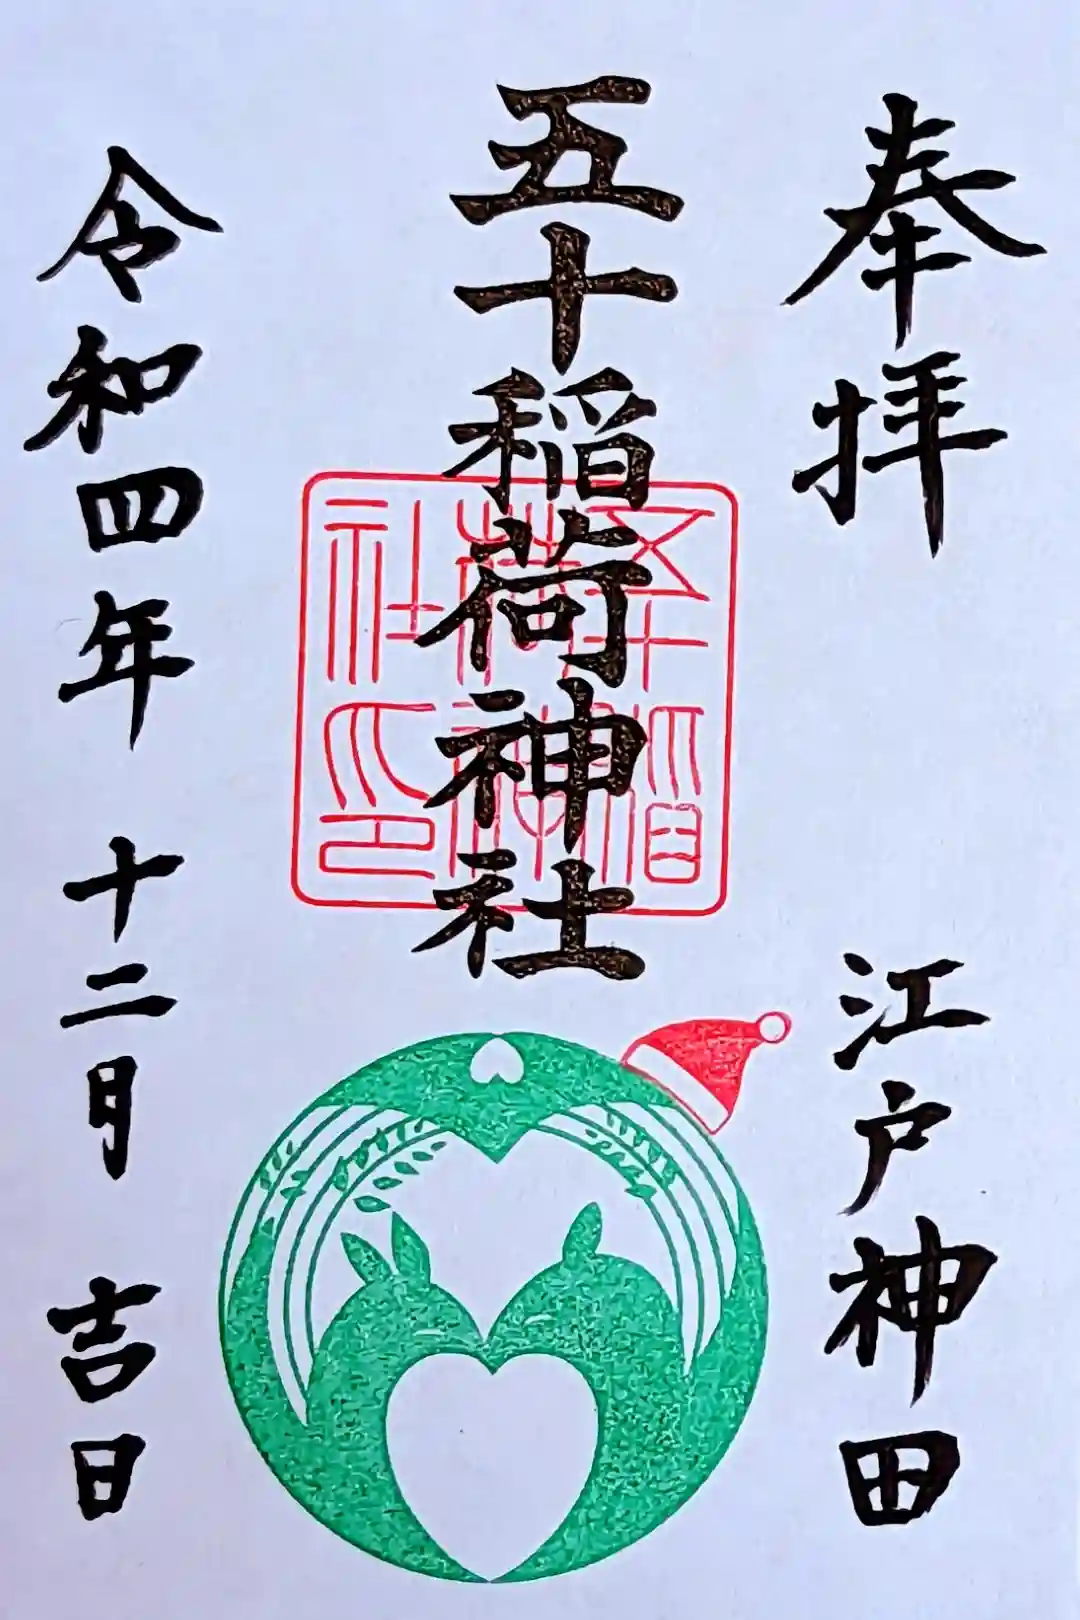 奉拝
江戸神田
五十稲荷神社
五十稲荷神社印
令和四年 十二月 吉日